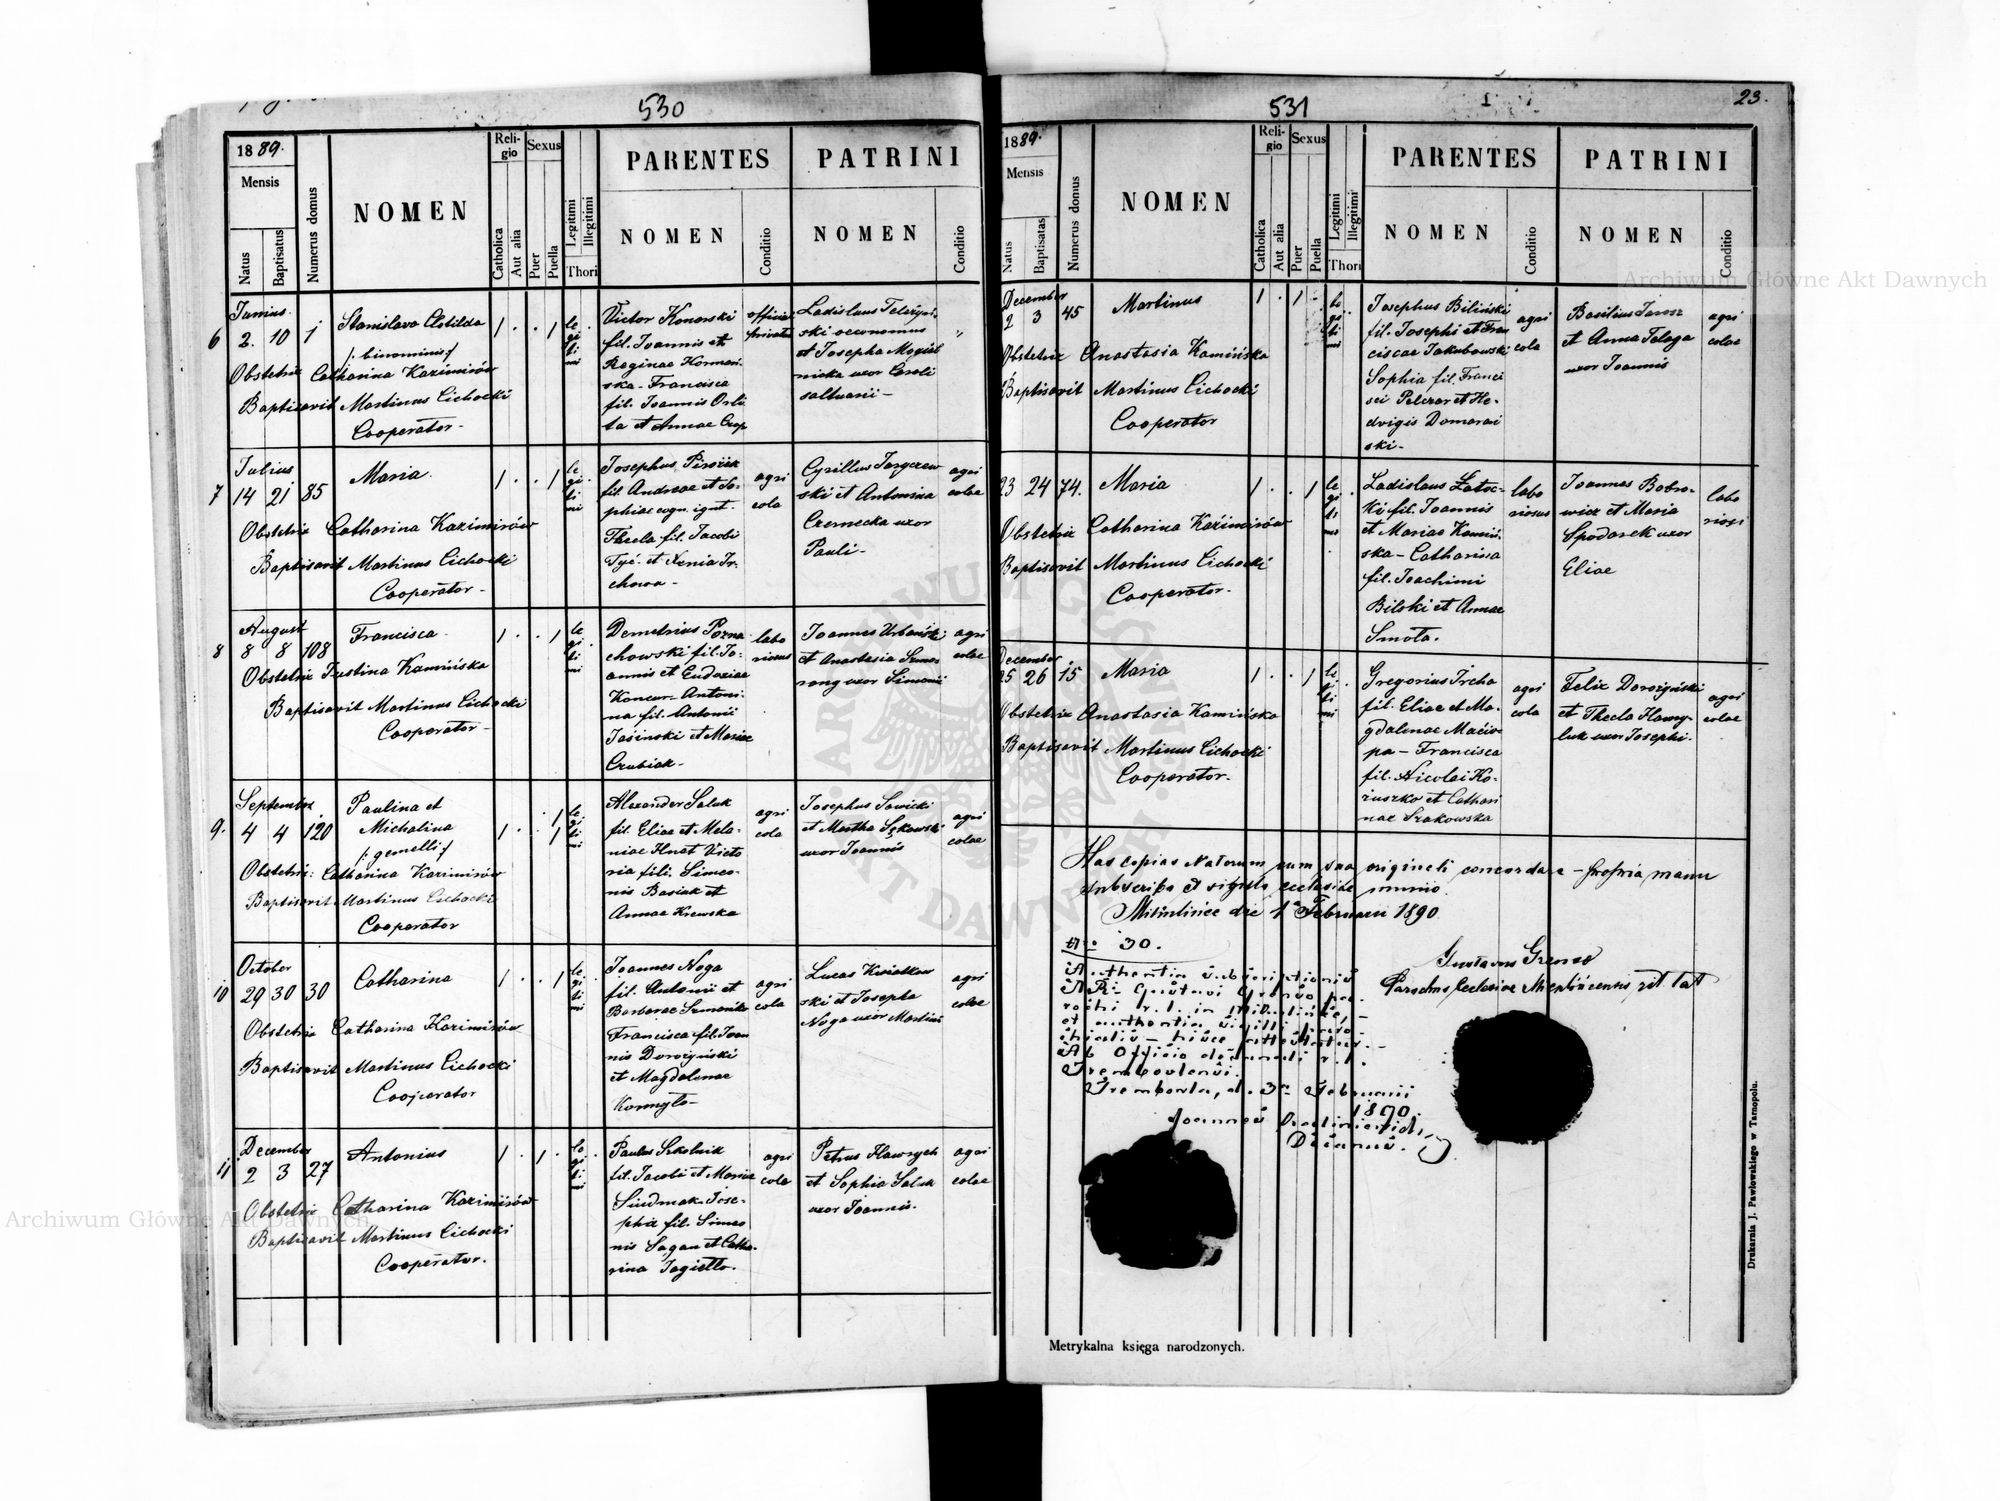 530
1889.
Mensis
Natus
Baptisatus
Numerus domus
NOMEN
Religio
Catholica
Aut alia
Sexus
Puer
Puella
Legitimi
Illegitimi
Thori
PARENTES
NOMEN
Conditio
PATRINI
NOMEN
Conditio
Junius
6 2. 10 1 Stanislava Clotilda
/: binominis :/
Obstetrix Catharina Kazimirów
Baptisavit Martinus Cichocki
Cooperator -
legitimi
Victor Konarski
fil. Joannis et
Reginae
ska - Francisca
fil. Joannis Orli
ta et Annae Czop
Ladislaus
ski oeconomus
et Josepha
nicka uxor Caroli
saltuarii -
Julius
7 14 21 85 Maria
Obstetrix Catharina Kazimirów
Baptisavit Martinus Cichocki
Cooperator -
legitimi
Josephus
fil. Andreae et So-
phiae cogn. ignt.
Thecla fil. Jacobi
et Xenia Ir-
chowa -
agri
cola
Cyrillus
ski et Antonina
Czernecka uxor
Pauli -
agri
colae
August
8 8 8 108 Francisca
Obstetrix Justina Kamińska
Baptisavit Martinus Cichocki
Cooperator -
legitimi
Demetrius Pozna
chowski fil. Jo-
annis et Eudoxiae
Antoni-
na fil. Antonii
Jasinski et Mariae
Czubiak -
labo
riosus
Joannes Urbański
et Anastasia
uxor Simonis
agri
colae
Septembr.
9. 4 4 120 Paulina et
Michalina
/: gemelli :/
Obstetrix: Catharina Kazimirów
Baptisavit Martinus Cichocki
Cooperator
legitimi
Alexander Saluk
fil. Eliae et Mela-
niae Hnat Victo
ria fili. Simeo-
nis Basiak et
Annae Kiewska
agri
cola
Josephus Sawicki
et Martha
uxor Joannis
agri
colae
October
10 29 30 30 Catharina
Obstetrix Catharina Kazimirów
Baptisavit Martinus Cichocki
Cooperator
legitimi
Joannes Noga
fil. Antonii et
Barbarae
Francisca fil. Joan
nis Dorożyński
et Magdalenae
Kormyło -
agri
cola
Lucas Kwiatkow
ski et Josepha
Noga uxor Martini
agri
colae
December
11 2 3 27 Antonius
Obstetrix Catharina Kazimirów
Baptisavit Martinus Cichocki
Cooperator.
legitimi
Paulus Szkolnik
fil. Jacobi et Mariae
Jose-
pha fil. Simeo
nis Sagan et Catha-
rina Jagiełło.
agri
cola
Petrus Hawrych
et Sophia Saluk
uxor Joannis.
agri
colae
531
23.
1889.
Mensis
Natus
Baptisatas
Numerus domus
NOMEN
Religio
Catholica
Aut alia
Sexus
Puer
Puella
Legitimi
Illegitimi
Thori
PARENTES
NOMEN
Conditio
PATRINI
NOMEN
Conditio
December
2 3 45 Martinus
Obstetrix Anastasia Kamińska
Baptisavit Martinus Cichocki
Cooperator
legitimi
Josephus Biliński
fil. Josephi et Fran
ciscae Jakubowski
Sophia fil. Franci
sci Pelczar et He-
dvigis Domarai
ski -
agri
cola
Basilius Jarosz
et Anna
uxor Joannis
agri
colae
23 24 74. Maria
Obstetrix Catharina Kazimirów
Baptisavit Martinus Cichocki
Cooperator.
Ladislaus
ki fil. Joannis
et Mariae Kamiń-
ska - Catharina
fil. Joachimi
Bilski et Annae
Smoła.
labo
riosus
Joannes Bobro-
wicz et Maria
Spodarek uxor
Eliae
labo
riosi
December
25 26 15 Maria
Obstetrix Anastasia Kamińska
Baptisavit Martinus Cichocki
Cooperator.
Gregorius Ircha
fil. Eliae et Ma-
gdalenae
pa - Francisca
fil. Nicolai Ko-
ziuszko et Cathari
nae Szakowska
agri
cola
Felix Dorożyński
et Thecla Hawry-
luk uxor Josephi.
agri
colae
Has copias Natorum cum sua origineli concordare - propria manu
subscripta et sigillo ecclesiae munio.
die 1a Februarii 1890.
Nro 30.
Gustavus
Parochus Ecclesiae rit. lat
et authentia sigilli paro-
chialis - hisce attestatur. -
Ab Officio decanali r. l.
Trembovlensi.
Trembovla, d. 3a Februarii
1890.
Joannes
Decanus.
Metrykalna księga narodzonych.
Drukarnia J. Pawłowskiego w Tarnopolu.
Archiwum Główne Akt Dawnych
Archiwum Główne Akt Dawnych
ARCHIWUM GŁÓWNE AKT DAWNYCH